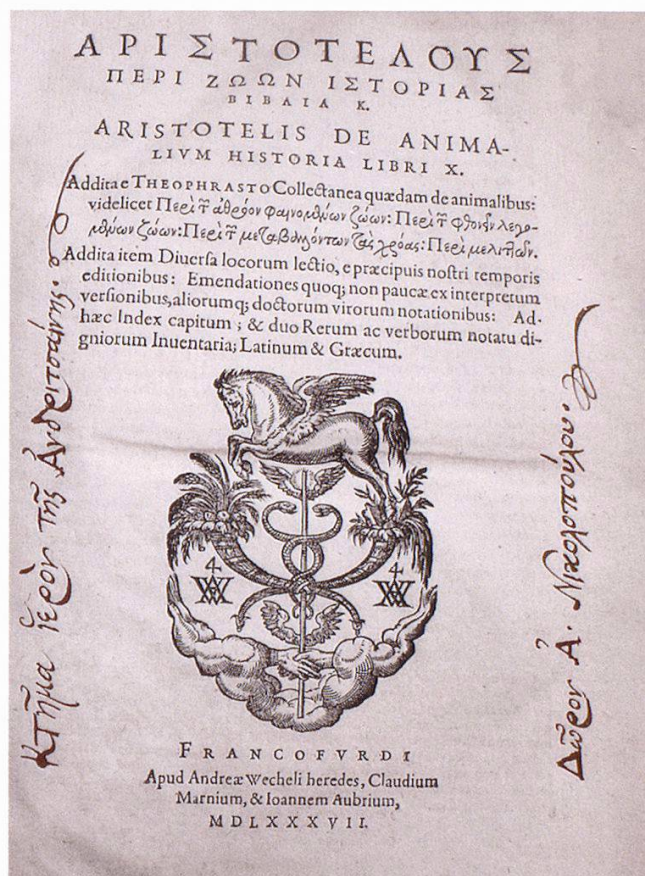 ΑΡΙΣΤΟΤΕΛΟΥΣ
ΠΕΡΙ ΖΩΩΝ ΙΣΤΟΡΙΑΣ
ΒΙΒΛΙΑ Κ.
ARISTOTELIS DE ANIMA-
LIVM HISTORIA LIBRI X.
Addita e THEOPHRASTO Collectanea quædam de animalibus:
videlicet Περὶ τ̃ ἀθρόον φαινομένων ζώων: Περὶ τ̃ φθονεῖν λεγο-
μένων ζώων: Περὶ τ̃ μεταβαλλόντων τὰς χρόας: Περὶ μελιτῶν.
Addita item Diuersa locorum lectio, e præcipuis nostri temporis
editionibus: Emendationes quoq; non paucæ ex interpretum
versionibus, aliorumq; doctorum virorum notationibus: Ad-
hæc Index capitum; & duo Rerum ac verborum notatu di-
gniorum Inuentaria; Latinum & Græcum.
Κτῆμα ἱερὸν τῆς Ἀνδριτσαίνης.
Δῶρον Ἀ. Νικολοπούλου.
4
4
FRANCOFVRDI
Apud Andreæ Wecheli heredes, Claudium
Marnium, & Ioannem Aubrium,
MDLXXXVII.